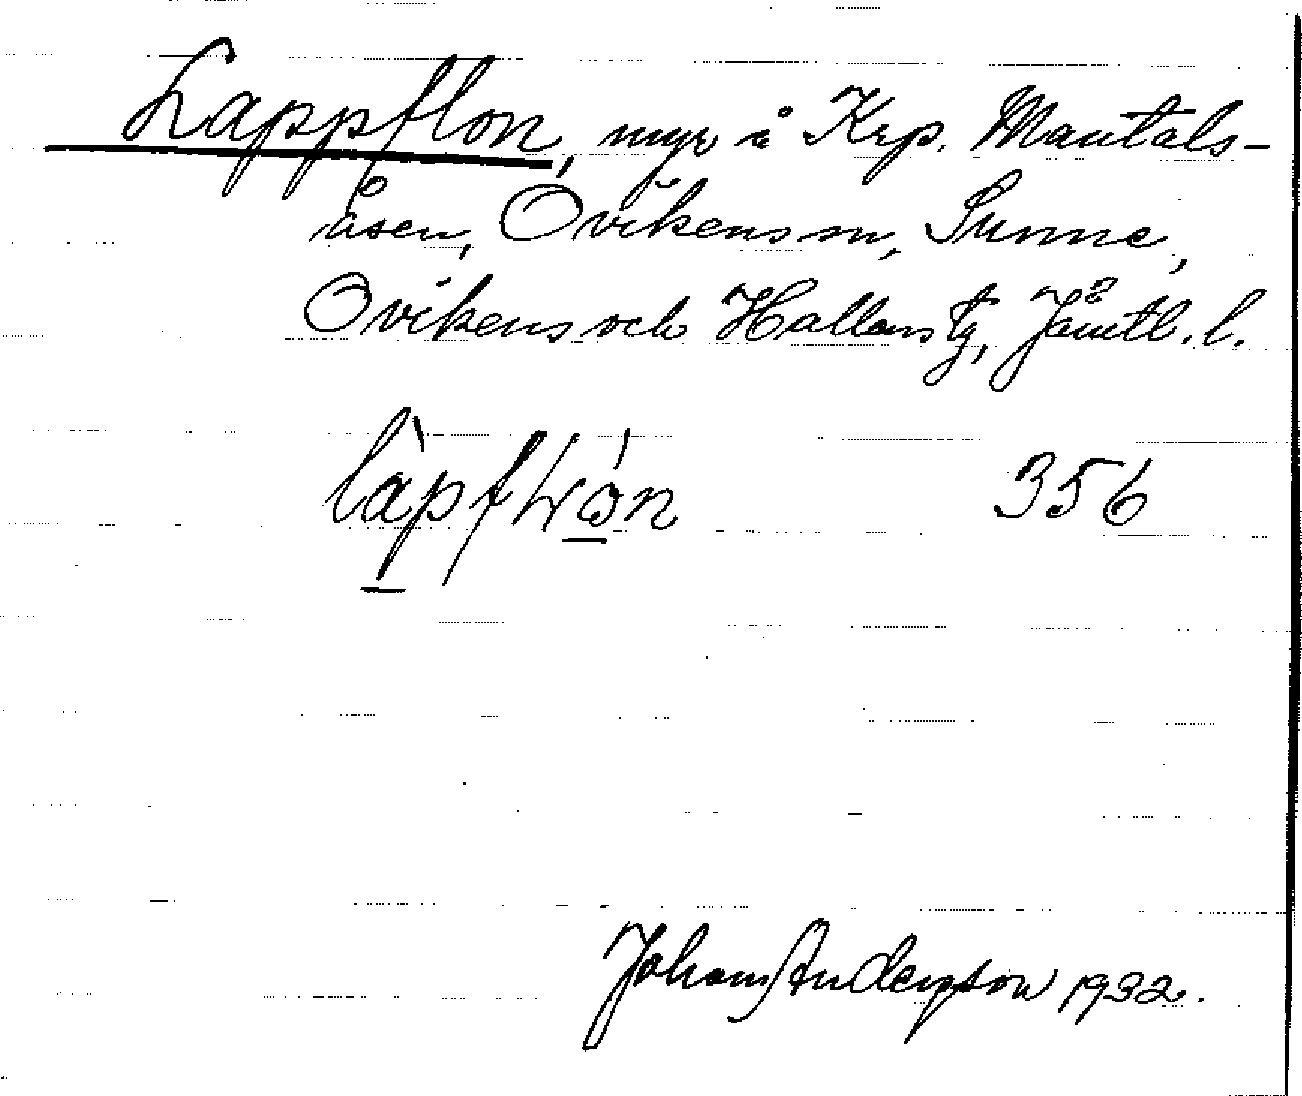 Lappflon, myr i Krp. Mantals-
åsen, Ovikens sn, Sunne,
Oviken och Hallens tg, Jämtl. l.
356
Johan Anderson 1932.